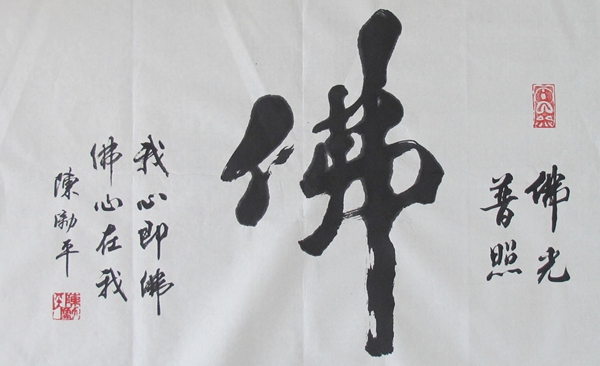 佛光
普照
佛
我心即佛
佛心在我
陳平